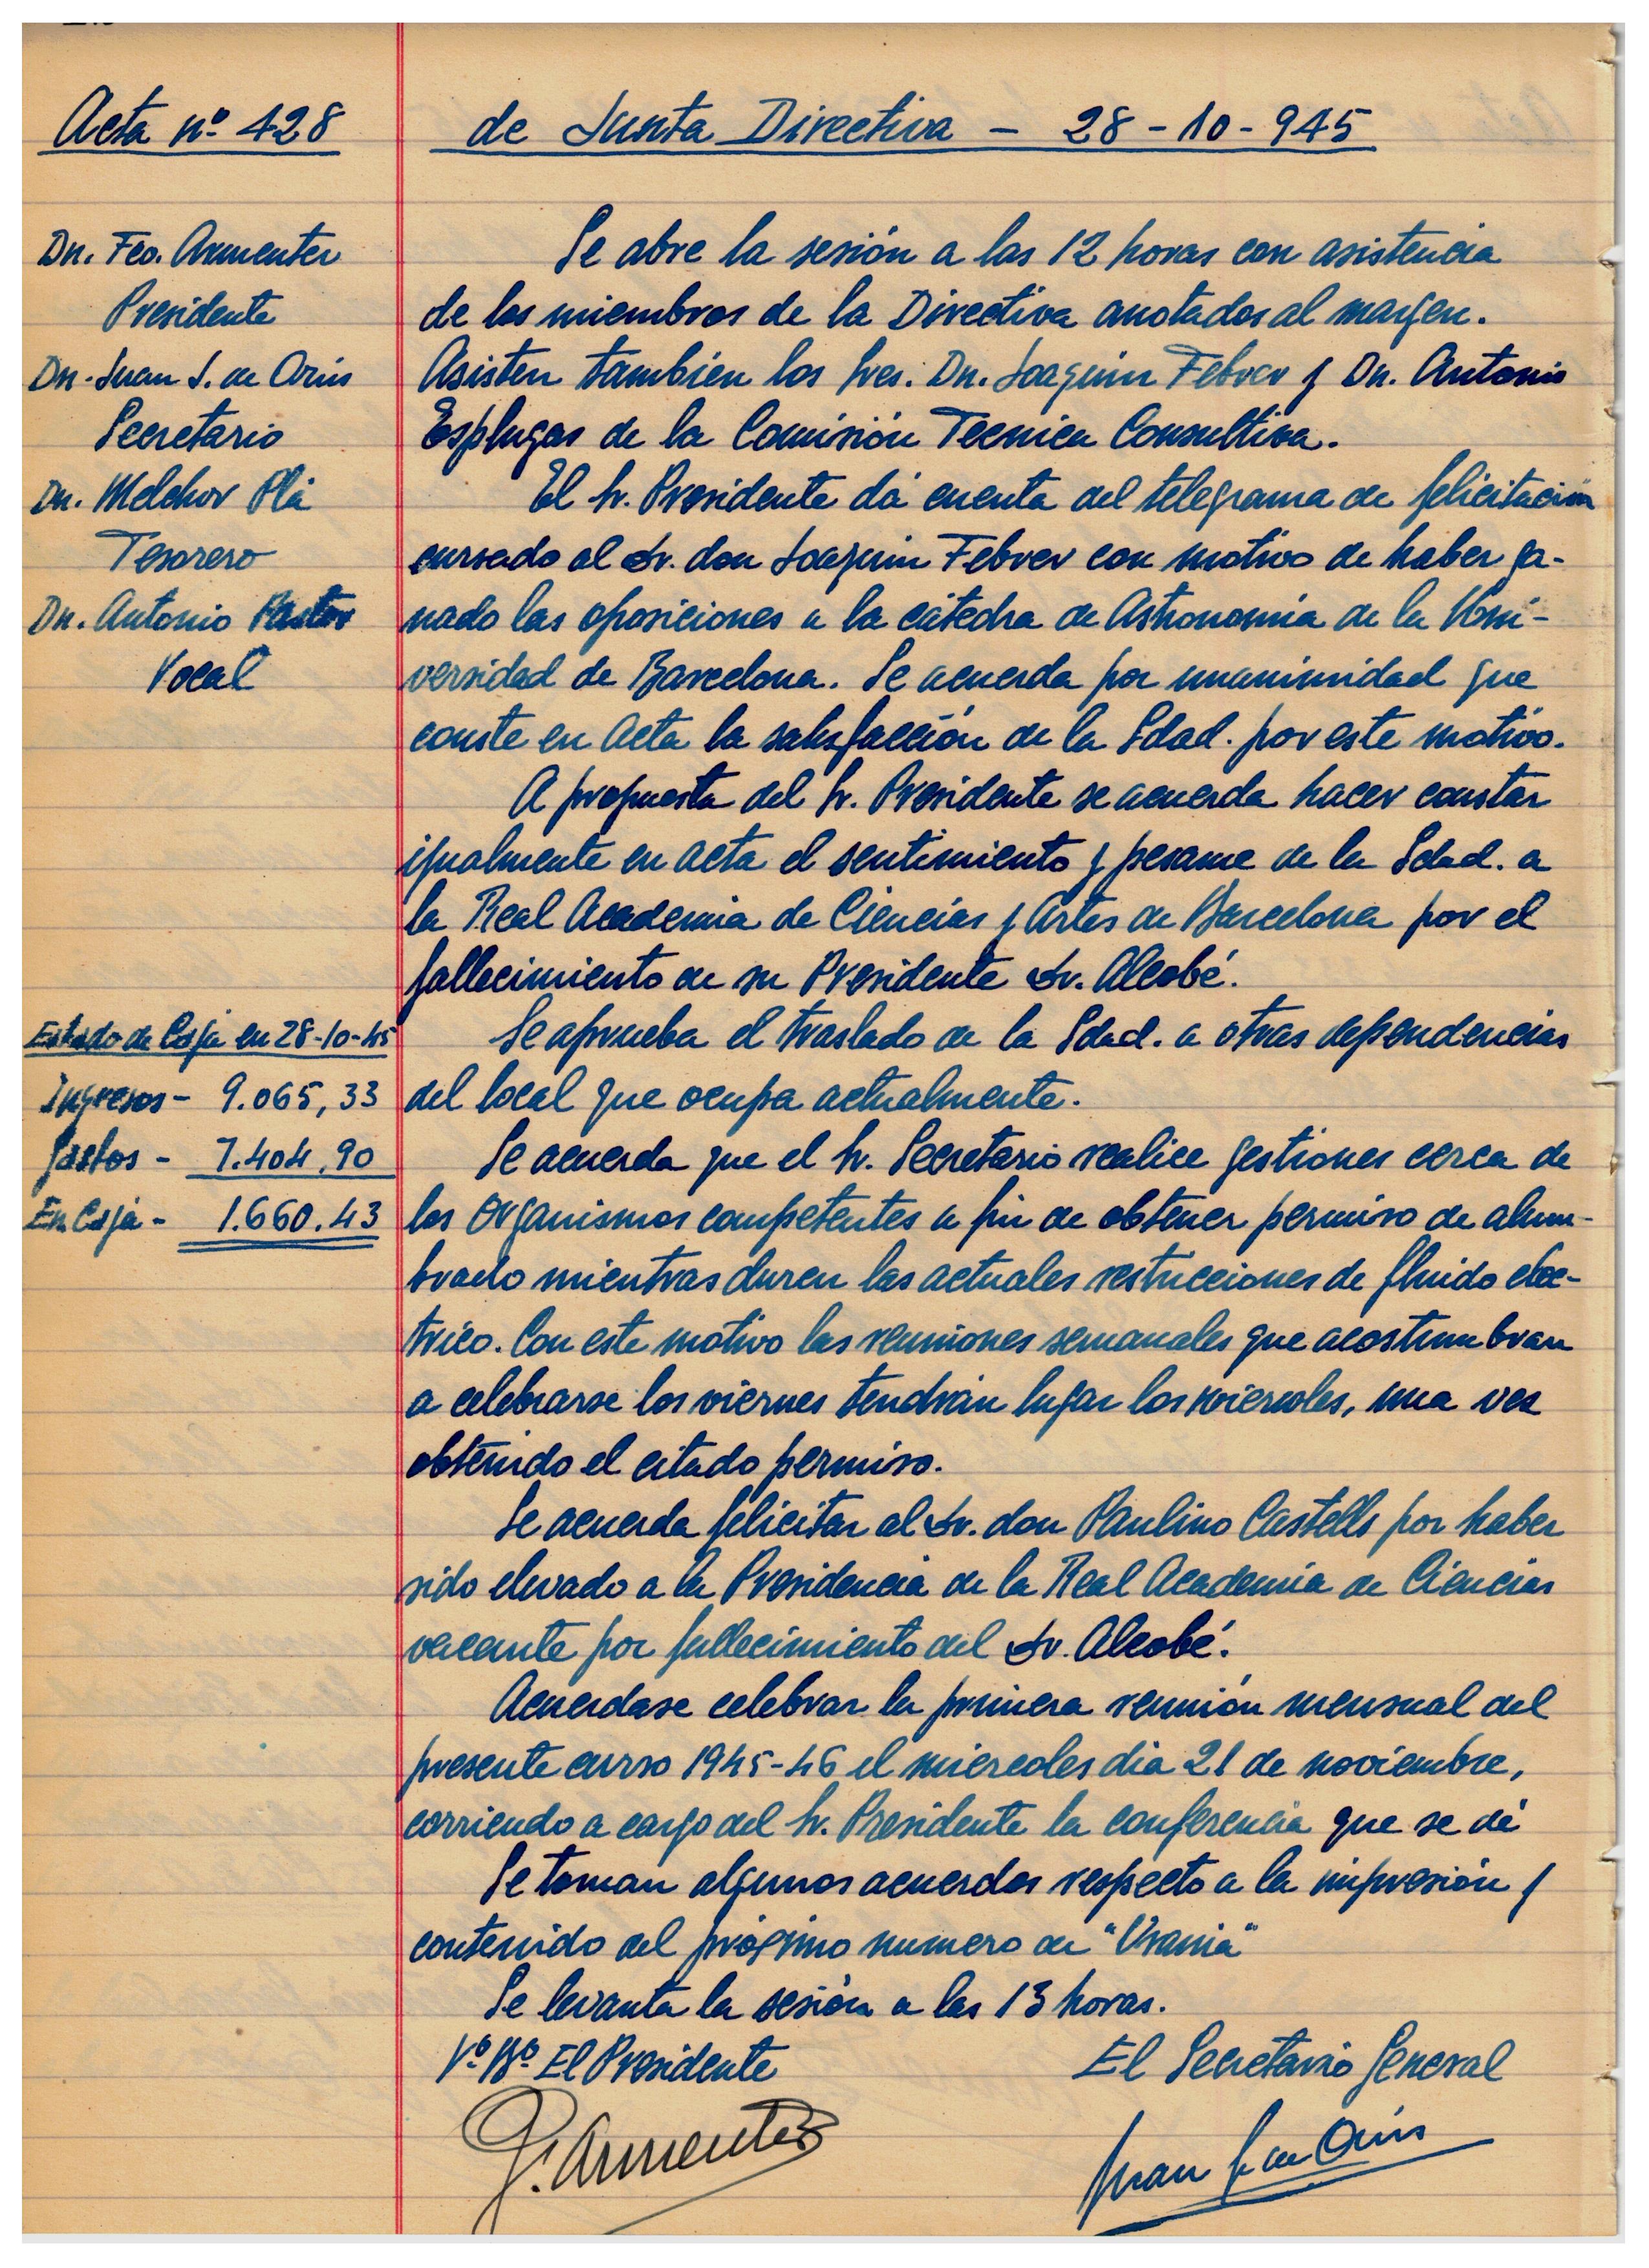 Acta nº 428
de Junta Directiva - 28-10-945
Dn. Fco. Armenter
Presidente
Dn. Juan S. de Orús
Secretario
Dn. Melchor Plá
Tesorero
Dn. Antonio Pastor
Vocal
Se abre la sesión a las 12 horas con asistencia
de los miembros de la Directiva anotados al margen.
Asisten tambien los Sres. Dn. Joaquin Febrer y Dn. Antonio
Esplugas de la Comisión Tecnica Consultiva.
El Sr. Presidente dá cuenta del telegrama de felicitación
cursado al Sr. don Joaquin Febrer con motivo de haber ga-
nado las oposiciones a la cátedra de Astronomía de la Uni-
versidad de Barcelona. Se acuerda por unanimidad que
conste en Acta la satisfacción de la Sdad. por este motivo.
A propuesta del Sr. Presidente se acuerda hacer constar
igualmente en acta el sentimiento y pesame de la Sdad. a
la Real Academia de Ciencias y Artes de Barcelona por el
fallecimiento de su Presidente Sr. Alcobé.
Se aprueba el traslado de la Sdad. a otras dependencias
del local que ocupa actualmente.
Estado de Caja en 28-10-45
Ingresos - 9.065,33
Gastos - 7.404,90
En Caja - 1.660.43
Se acuerda que el Sr. Secretario realice gestiones cerca de
los Organismos competentes a fin de obtener permiso de alum-
brado mientras duren las actuales restricciones de fluido eléc-
trico. Con este motivo las reuniones semanales que acostumbran
a celebrarse los viernes tendrán lugar los miercoles, una vez
obtenido el citado permiso.
Se acuerda felicitar al Sr. don Paulino Castells por haber
sido elevado a la Presidencia de la Real Academia de Ciencias
vacante por fallecimiento del Sr. Alcobé.
Acuerdase celebrar la primera reunión mensual del
presente curso 1945-46 el miercoles dia 21 de noviembre,
corriendo a cargo del Sr. Presidente la conferencia que se dé
Se toman algunos acuerdos respecto a la impresión y
contenido del próximo numero de "Urania"
Se levanta la sesión a las 13 horas.
Vº Bº El Presidente
El Secretario General
F. Armenter
Juan S. de Orús